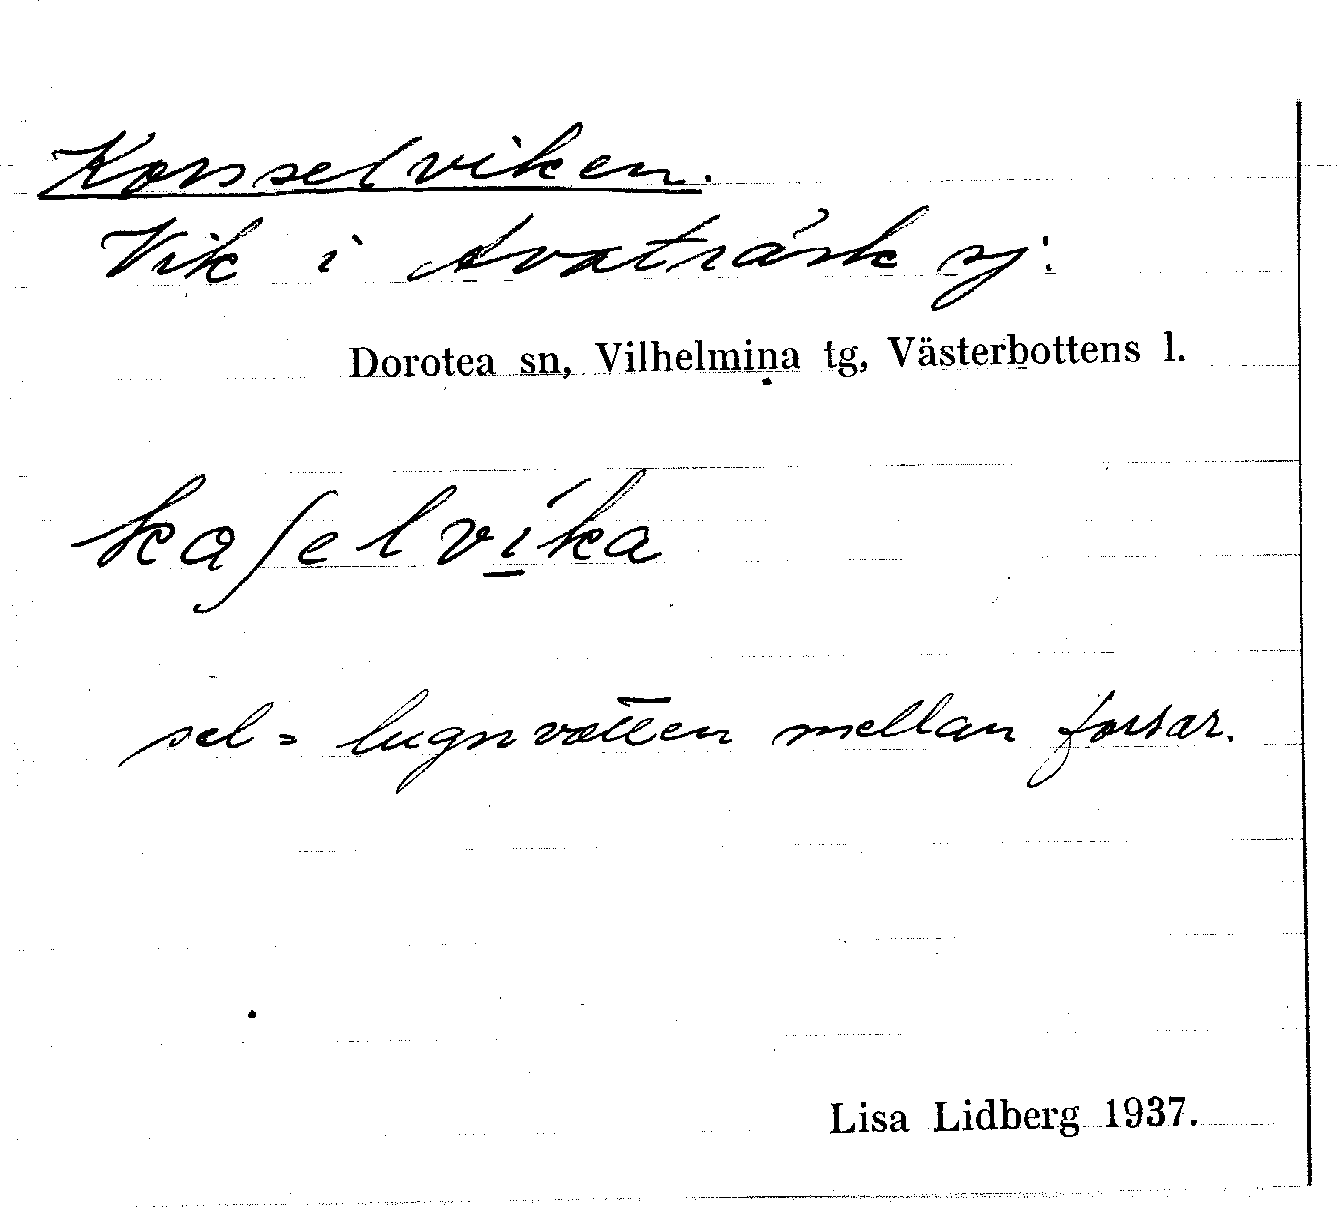 Korsselviken.
Vik i Avaträsk sj.
Dorotea sn, Vilhelmina tg, Västerbottens l.
kaʃelví̲ka
sel = lugnvatten mellan forsar.
Lisa Lidberg 1937.